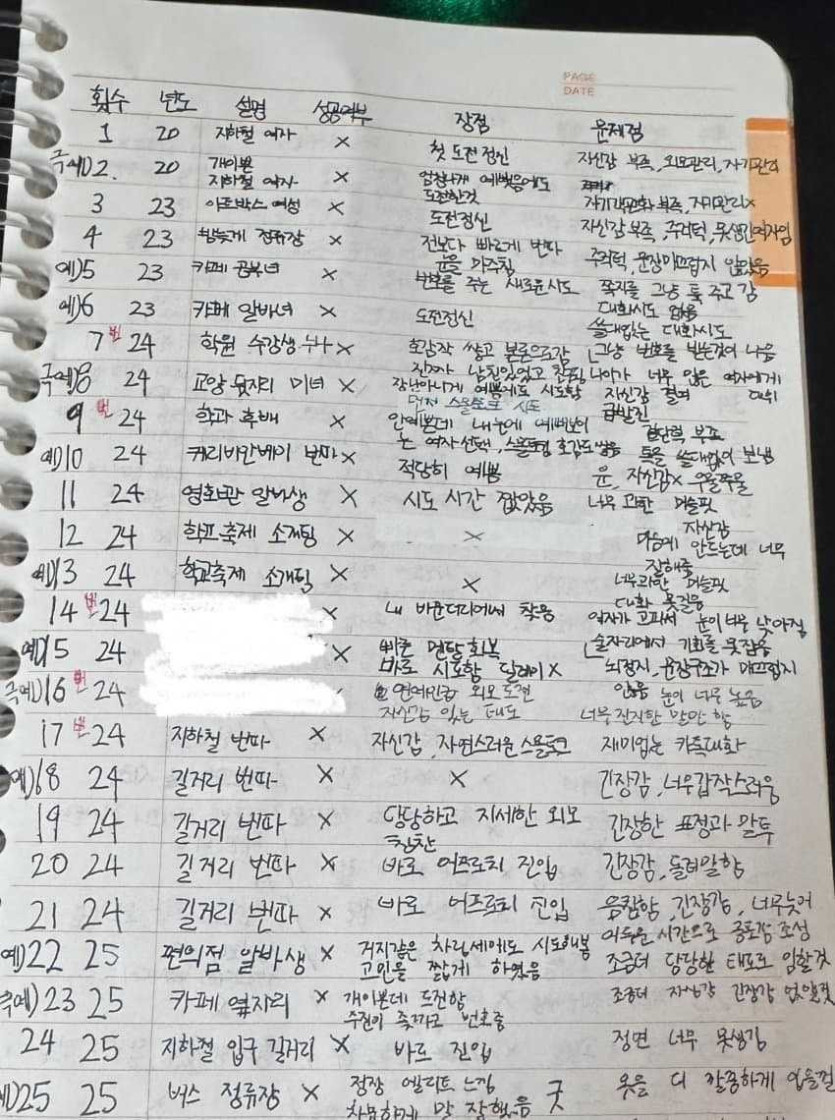 PAGE
DATE
횟수 년도 설명 성공여부 장점 문제점
1 20 지하철 여자 × 첫 도전정신 자신감 부족, 외모관리, 자기관리
극예)2. 20 개이쁜 지하철 여자 × 엄청나게 예뻤음에도 도전한것
3 23 여성 × 도전정신 자기객관화 부족, 자기관리×
4 23 버스 정류장 × 전보다 빠르게 번따 자신감 부족, 주저함, 못생긴여자임
눈을 마주침
예)5 23 카페 공부녀 × 번호를 주는 새로운시도 쪽지를 그냥 툭 주고 감
예)6 23 카페 알바녀 × 도전정신 대화시도 없음
쓸데없는 대화시도
7 번 24 학원 수강생 누나 × 호감작 쌓고 본론으로감 그냥 번호를 받는것이 나음
극예)8 24 교양 옆자리 미녀 × 자신감 결여
먼저 스몰토크 시도
9 번 24 학과 후배 × 안예쁜데 내 눈에 예쁘 급발진
는 여자 선택, 스몰토킹 호감도 쌓음 결단력 부족
예)10 24 캐리비안베이 번따 × 적당히 예쁨 톡을 쓸데없이 보냄
11 24 영화관 알바생 × 시도 시간 짧았음 너무 과한 머슬핏
12 24 학교축제 소개팅 × × 자신감
마음에 안드는데 너무
잘해줌
예)13 24 학교축제 소개팅 × × 너무과한 머슬핏
대화 못걸음
14 번 24 × 내 바운더리에서 찾음 여자가 고파서 눈이 너무 낮아짐
예)15 24 × 빠른 멘탈회복 술자리에서 기회를 못잡음
바로 시도함 딜레이× 뇌정지, 문장구조가 매끄럽지
극예)16 번 24 연예인급 외모 도전 않음 눈이 너무 높음
자신감 있는 태도 너무 진지한 말만 함
17 번 24 지하철 번따 × 자신감, 자연스러운 스몰토크 재미없는 카톡대화
예)18 24 길거리 번따 × × 긴장감, 너무갑작스러움
19 24 길거리 번따 × 당당하고 자세한 외모 칭찬 긴장한 표정과 말투
20 24 길거리 번따 × 바로 어프로치 진입 긴장감, 돌려말함
21 24 길거리 번따 × 바로 어프로치 진입 음침함, 긴장감, 너무늦어
어두운 시간으로 공포감 조성
예)22 25 편의점 알바생 × 거지같은 차림새에도 시도해봄 조금더 당당한 태도로 임할것
고민을 짧게 하였음
극예)23 25 카페 옆자리 × 개이쁜데 도전함 조금더 자신감 긴장감 없앨것
24 25 지하철 입구 길거리 × 바로 진입 정면 너무 못생김
예)25 25 버스 정류장 × 정장 엘리트 느낌 굿 옷을 더 깔끔하게 입을걸
차분하게 말 잘했음